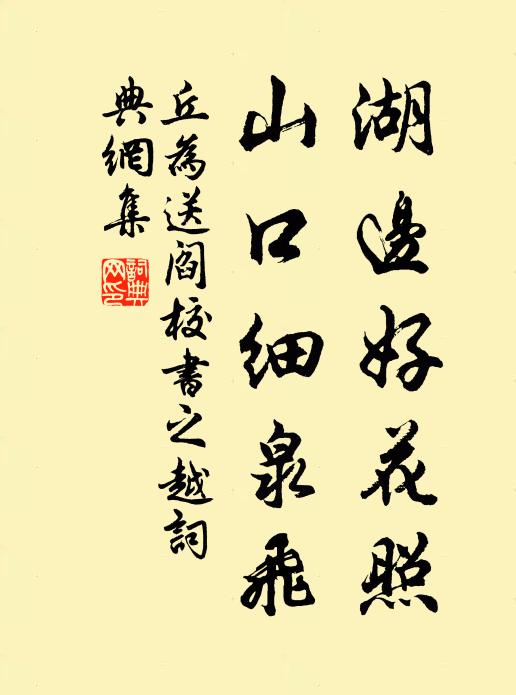 湖邊好花照
山口細泉飛
丘為送閻校書之越詞
典網集
詞典網印